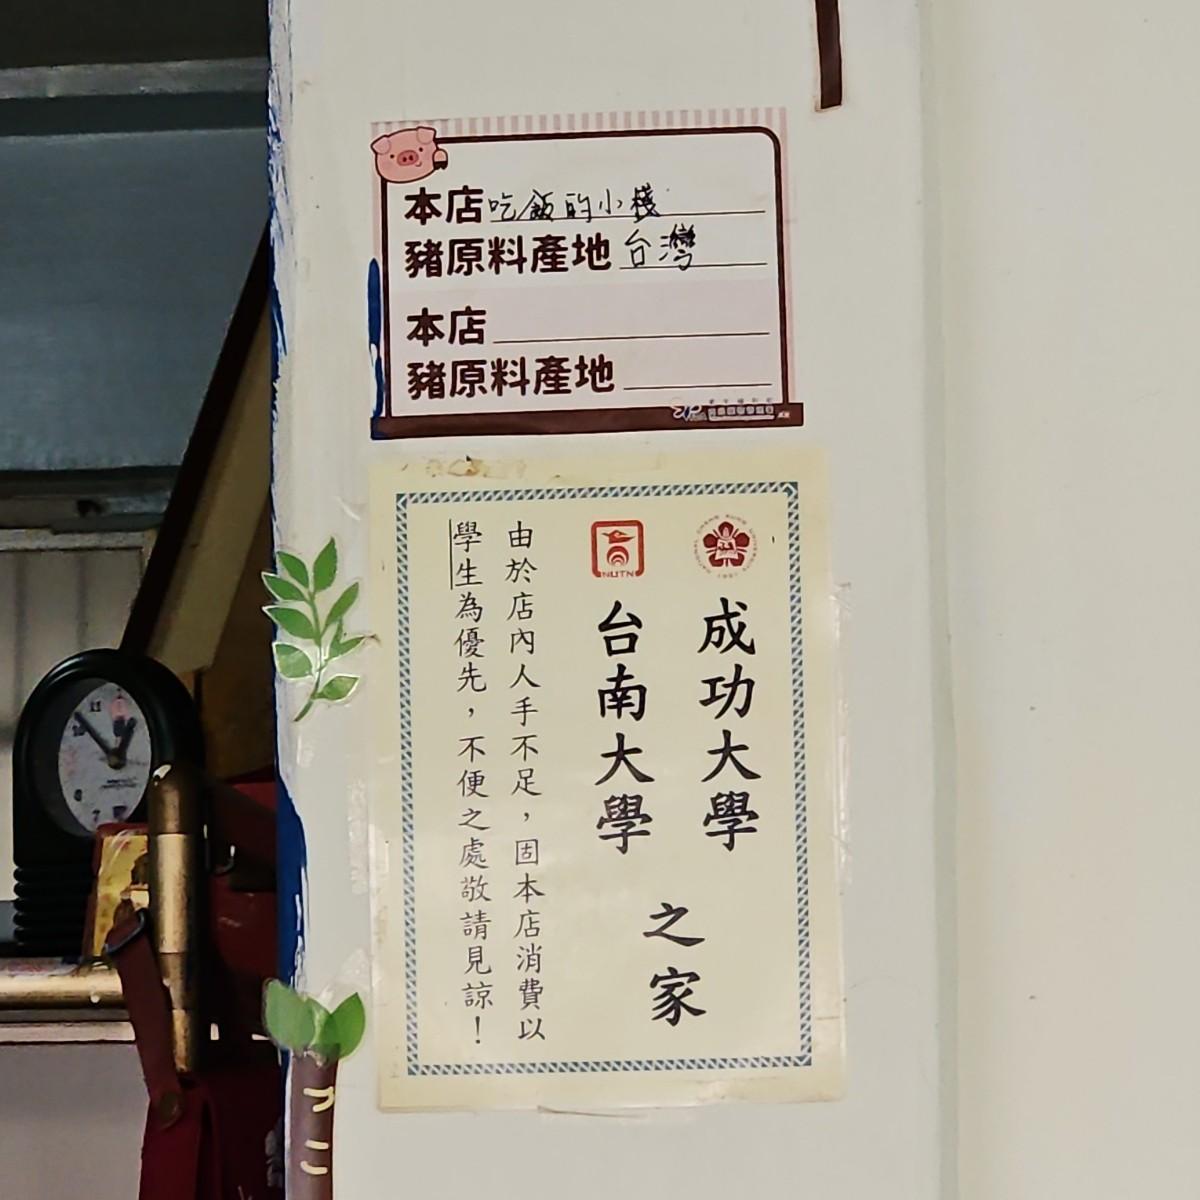 本店吃飯的小棧
豬原料產地台灣
本店
豬原料產地
成功大學
台南大學
之家
NUTN
由於店內人手不足，固本店消費以
學生為優先，不便之處敬請見諒！